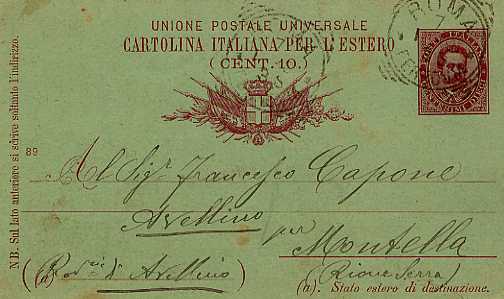 UNIONE POSTALE UNIVERSALE
CARTOLINA ITALIANA PER L'ESTERO
(CENT. 10.)
ROMA
7
POSTE ITALIANE
CENTESIMI DIECI
N B. Sul lato anteriore si scrive soltanto l'indirizzo.
89
Al Sigr Francesco Capone
Avellino per
Montella
(Rione Serra)
(a) di Avellino)
(a). Stato estero di destinazione.